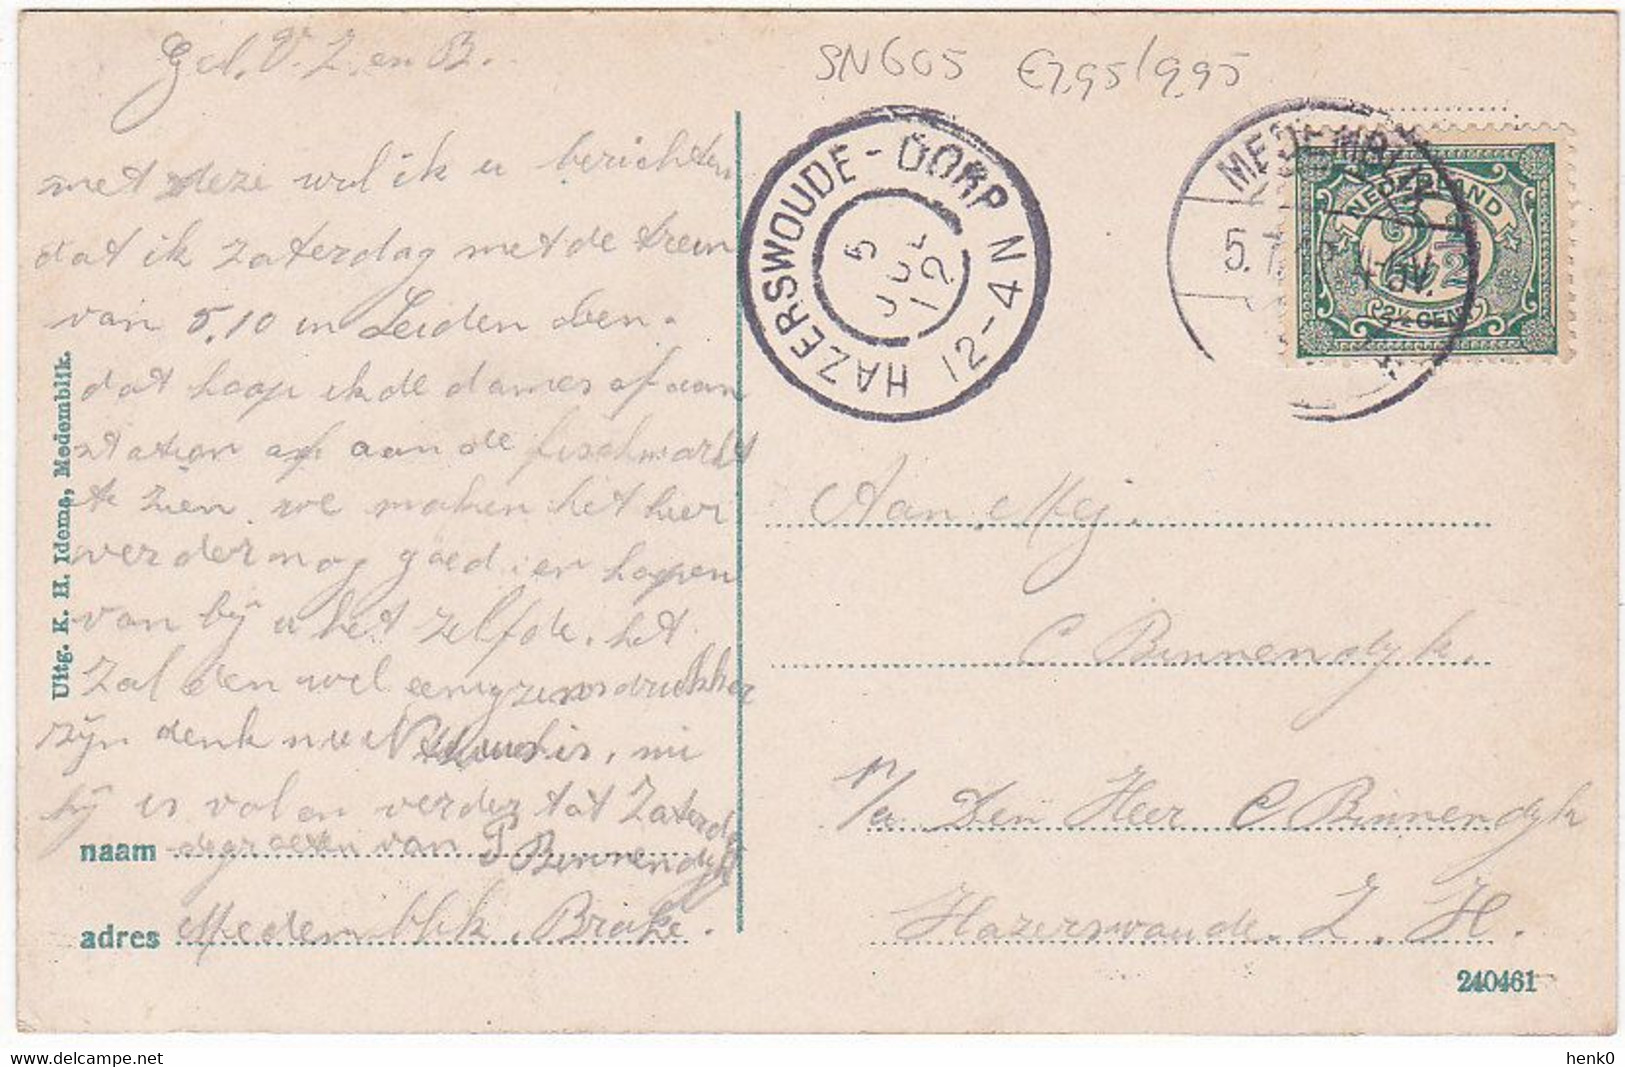 Gel. V. Z. en B.
met deze wil ik u berichten
dat ik Zaterdag met de trein
van 5.10 in Leiden ben.
dat hoop ik de dames of aan
station of aan de fischmarkt
te zien. we maken het hier
verder nog goed. en hopen
van bij u het zelfde. het
zal den wel
zijn denk nu is, nu
hij is vol en verder tot Zaterdag
naam degroeten van P Binnendyk
adres Medemblik. Brake.
Uitg. K. H. Idema, Medemblik.
SN605 E7,95/9,95
HAZERSWOUDE-DORP
5 JUL 12
12-4N
MEDEMBLIK
5.7. 4-5N.
NEDERLAND
2 1/2
2½ CENT
Aan Mej.
C Binnendyk.
p/a Den Heer C Binnendyk
Hazerswoude. Z. H.
240461
henk0